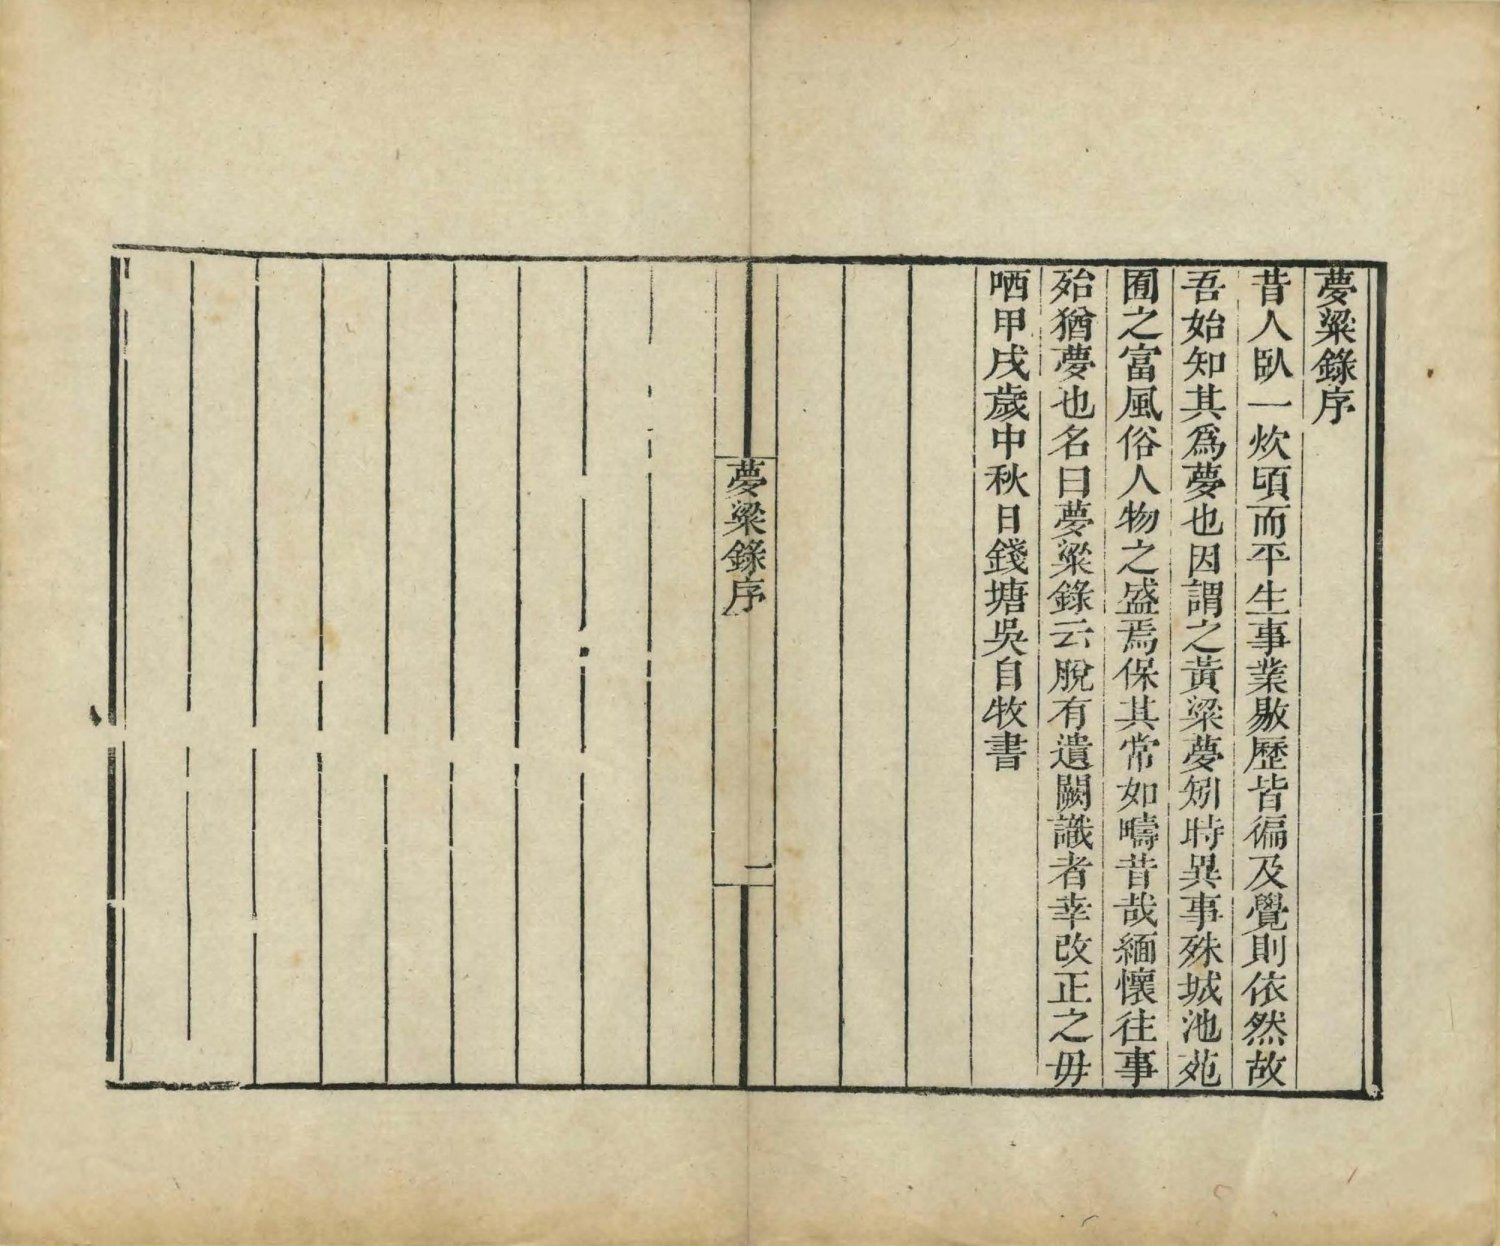 夢粱錄序
昔人臥一炊頃而平生事業敭歷皆徧及覺則依然故
吾始知其爲夢也因謂之黃粱夢矧時異事殊城池苑
囿之富風俗人物之盛焉保其常如疇昔哉緬懷往事
殆猶夢也名曰夢粱錄云脫有遺闕識者幸改正之毋
哂甲戌歲中秋日錢塘吳自牧書
夢粱錄序
一